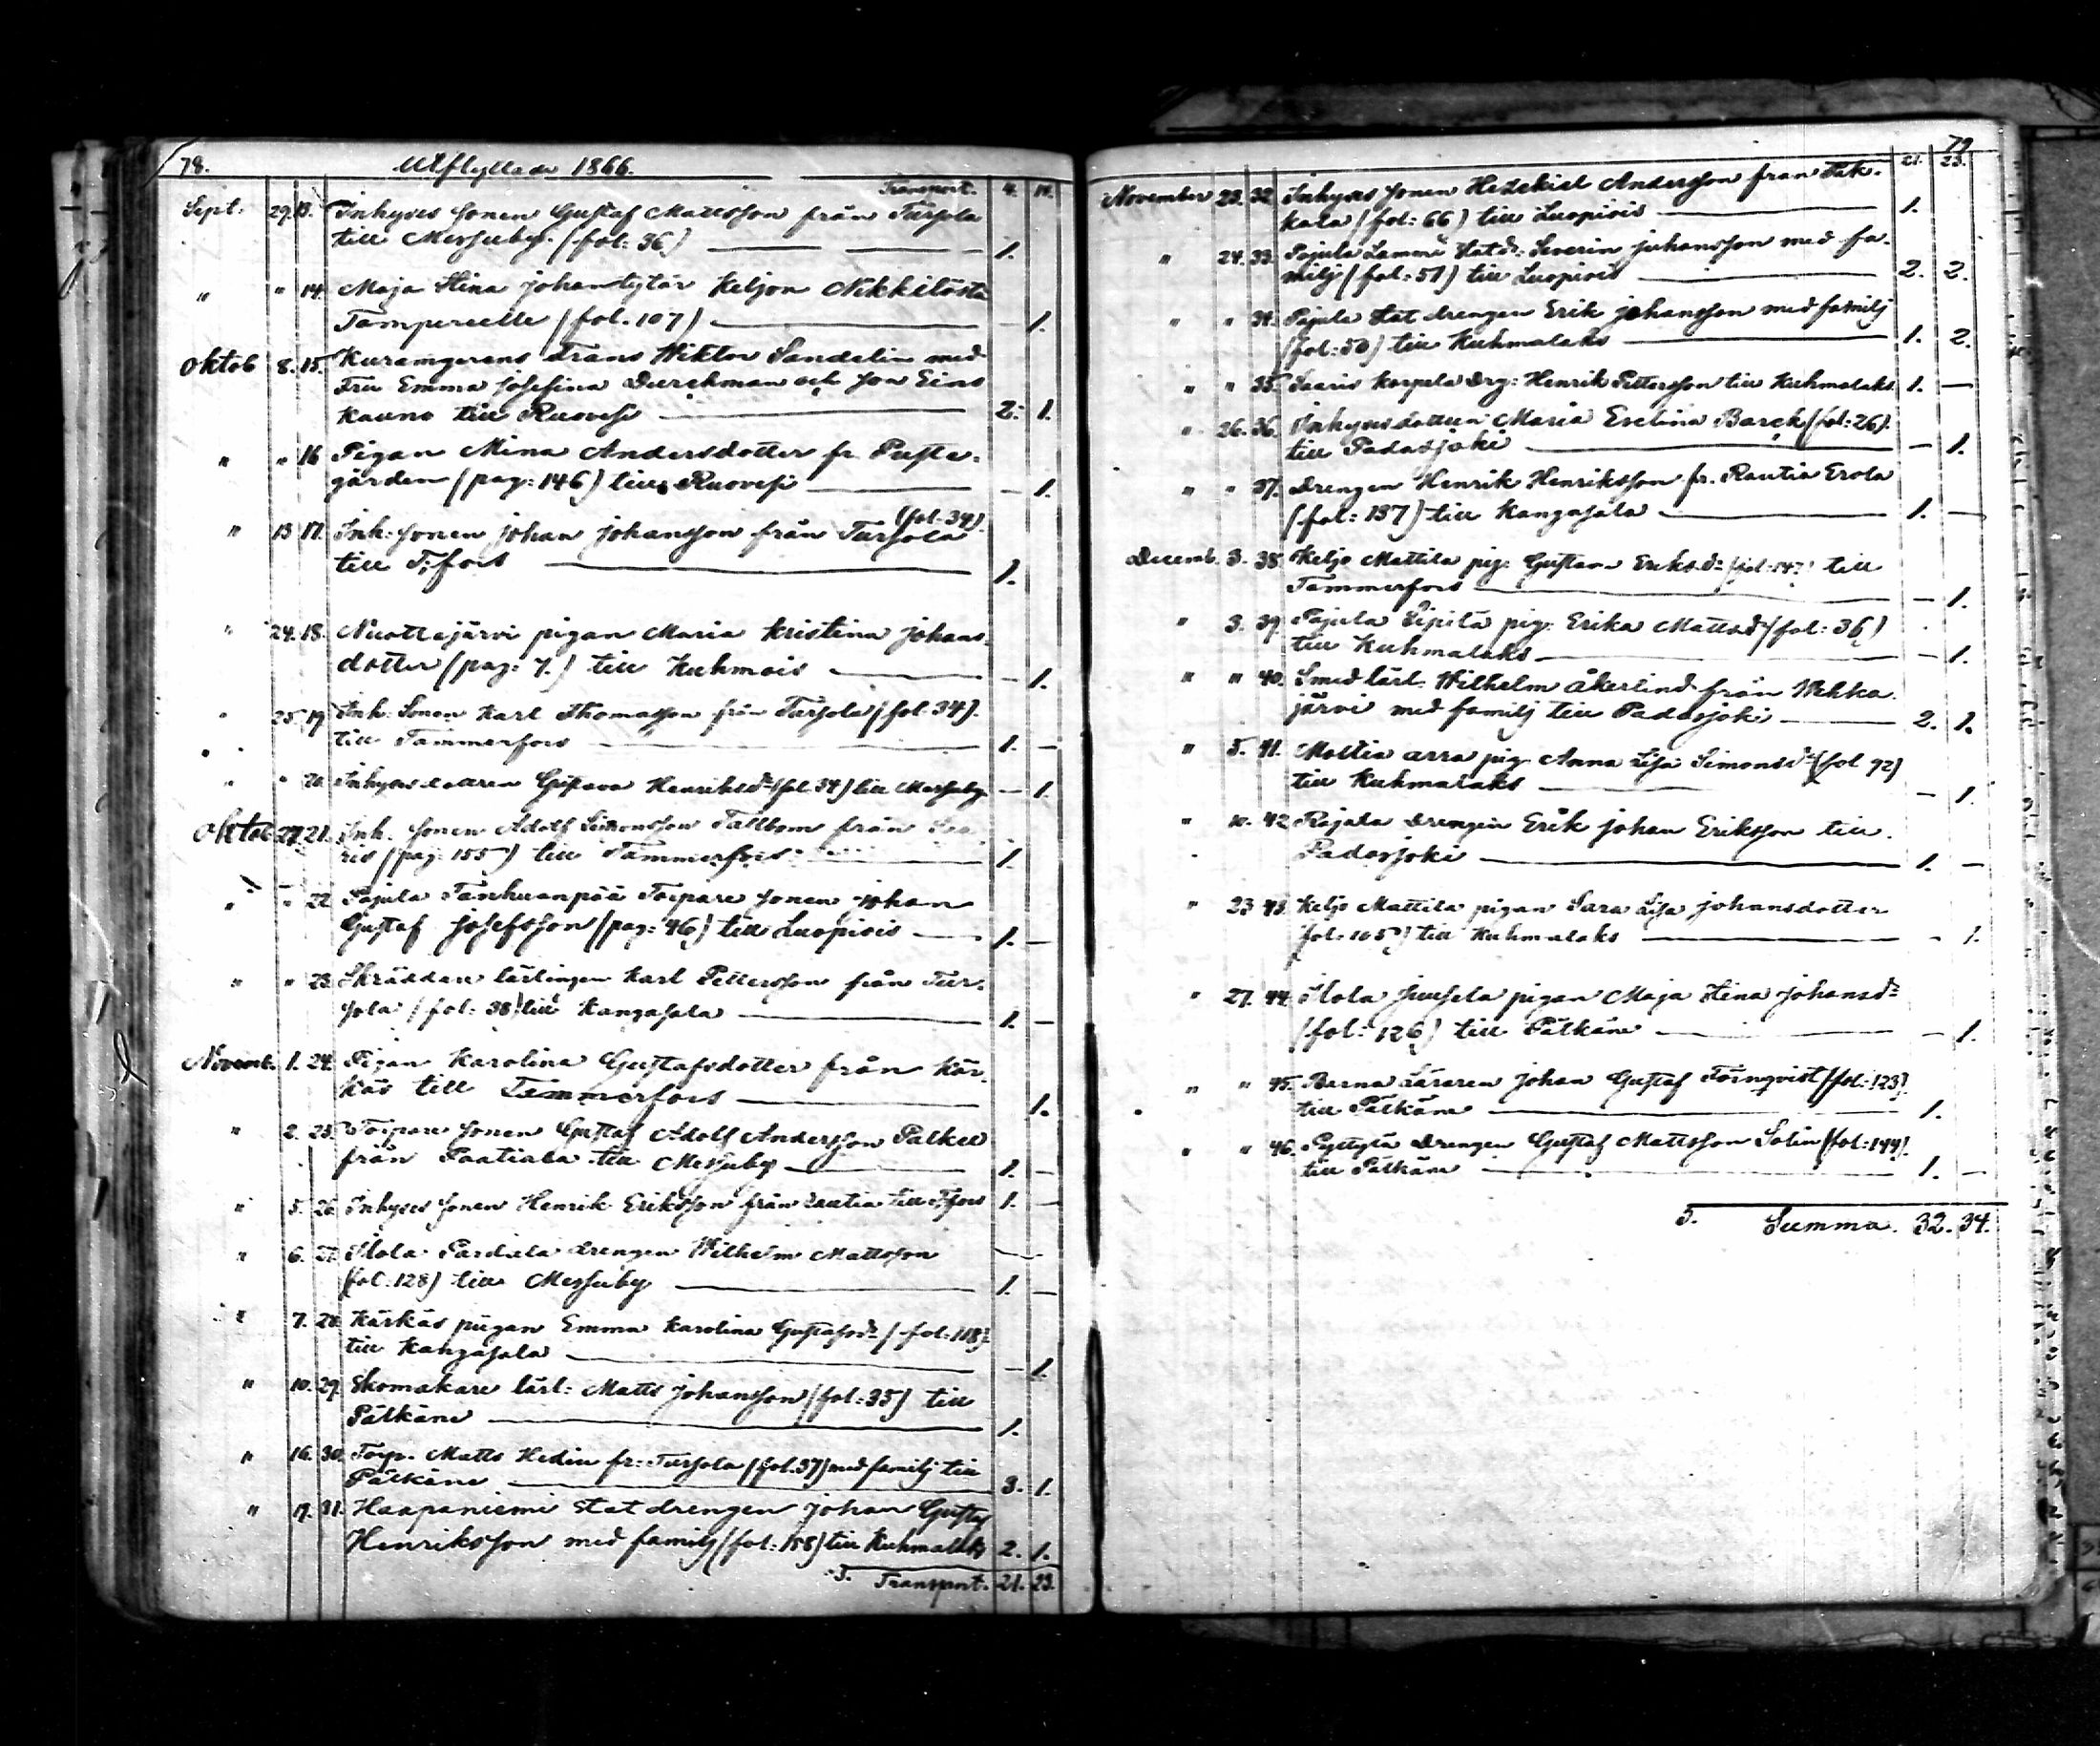 78. Utflyttade 1866.
Transport. 4. 14.
Sept. 29. 13. Inhyses sonen Gustaf Mattsson från Tursola
till Messuby. (fol: 36) 1.
" " 14. Maja Stina Johantytär Keljon Nikkilästä
Tampereelle (fol. 107) — 1.
Oktob 8. 15. Frans Wiktor Sandelin med
Fru Emma Josefina Durchman och son Eino
Kauno till Ruovesi 2. 1.
" " 16 Pigan Mina Andersdotter fr.
gården (pag: 146) till Ruovesi — 1.
(fol. 34).
" 13 17. Inh: sonen Johan Johansson från Tursola
till T:fors 1.
" 24. 18. Nuottajärvi pigan Maria Kristina Johans-
dotter (pag: 7.) till Kuhmois — 1.
" 25. 19 Inh: Sonen Karl Thomasson från Tursola (fol 34).
till Tammerfors 1. —
" " 20. Inhyses dottren Gustava Henriksdr (fol. 34) till Messuby — 1.
Oktob 27. 21. Inh. sonen Adolf Simonsson Tallbom från Saa-
ris (pag: 155) till Tammerfors 1.
" " 22. Pajula Tanhuanpää Torpare sonen Johan
Gustaf Josefsson (pag: 46) till Luopiois 1. —
" " 23. Skräddare lärlingen Karl Pettersson från Tur-
sola (fol: 38) till Kangasala 1. —
Novemb. 1. 24. Pigan Karolina Gustafsdotter från Kär-
käs till Tammerfors 1.
" 2. 25. Torpare sonen Gustaf Adolf Andersson
från Paatiala till Messuby 1. —
" 5. 26. Inhyses sonen Henrik Eriksson från Rautia till T:fors 1. —
" 6. 27. Drengen Wilhelm Mattsson
(fol: 128) till Messuby 1. —
" 7. 28. Kärkäs pigan Emma Karolina Gustafsdr (fol: 118).
till Kangasala — 1.
" 10. 29. Skomakare lärl: Matts Johansson (fol: 35) till
Pälkäne 1.
" 16. 30. Torp. Matts Hedin fr: Tursola (fol. 37) med familj till
Pälkäne 3. 1.
" 17. 31. Haapaniemi Statdrengen Johan Gustaf
Henriksson med familj (fol: 158) till Kuhmalaks 2. 1.
S. Transport. 21. 23.
79
21. 23.
November 23. 32. Inhyses sonen Hezekiel Andersson från Pak-
kala (fol: 66) till Luopiois 1.
" 24. 33. Pajula Statdr: Severin Johansson med fa-
milj (fol: 51) till Luopiois 2. 2.
" " 34. Pajula Stat drengen Erik Johansson med familj
(fol: 50) till Kuhmalaks 1. 2.
" " 35. Saaris Korpela Drg: Henrik Pettersson till Kuhmalaks 1. —
" 26. 36. Inhyses dottren Maria Evelina Barck (fol: 26).
till Padasjoki — 1.
" " 37. Drengen Henrik Henriksson fr. Rautia Erola
(fol: 137) till Kangasala 1. —
Decemb. 3. 38. Keljo Mattila pig: Gustava Eriksdr (fol: 147) till
Tammerfors — 1.
" 3. 39. Pajula Pipilä pig: Erika Mattsdr (fol: 36)
till Kuhmalaks — 1.
" " 40. Smed lärl: Wilhelm Åkerlind från Wehka-
järvi med familj till Padasjoki 2. 1.
" 5. 41. Mattia arra pig Anna Lisa Simonsdr (fol 92)
till Kuhmalaks — 1.
" 10. 42 Rajala Drengen Erik Johan Eriksson till
Padasjoki 1. —
" 23 43. Keljo Mattila pigan Sara Lisa Johansdotter
(fol: 105) till Kuhmalaks — 1.
" 27. 44. pigan Maja Stina Johansdr
(fol: 126) till Pälkäne — 1.
" " 45. Barna Läraren Johan Gustaf Törnqvist (fol: 123).
till Pälkäne 1.
" " 46. Drengen Gustaf Mattsson Solin (fol: 144).
till Pälkäne 1. —
S. Summa. 32. 34.